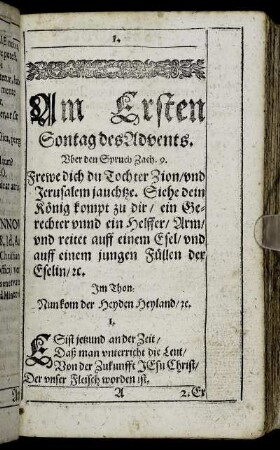 1.
Am Ersten
Sontag des Advents.
Vber den Spruch Zach. 9.
Frewe dich du Tochter Zion/ vnd
Jerusalem jauchtze. Siehe dein
König kompt zu dir/ ein Ge-
rechter vnnd ein Helffer/ Arm/
vnd reitet auff einem Esel/ vnd
auff einem jungen Füllen der
Eselin/ ꝛc.
Im Thon:
Nun kom der Heyden Heyland/ ꝛc.
1.
ES ist jetzund an der Zeit/
Daß man vnterricht die Leut/
Von der Zukunfft JEsu Christ/
Der vnser Fleisch worden ist.
A 2. Er